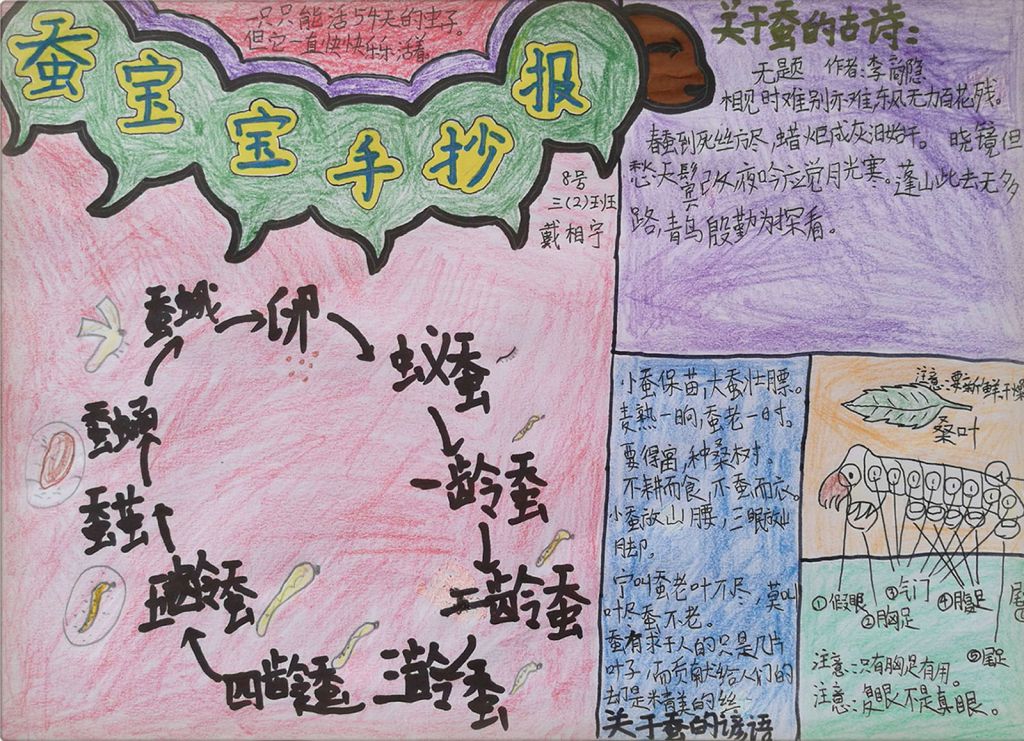 一只只能活54天的虫子。
但它一直快快乐乐活着。
蚕宝宝手抄报
8号
三(2)班
戴相宇
关于蚕的古诗:
无题 作者:李商隐
相见时难别亦难,东风无力百花残。
春蚕到死丝方尽,蜡炬成灰泪始干。晓镜但
愁天鬓改,夜吟应觉月光寒。蓬山此去无多
路,青鸟殷勤为探看。
蚕蛾
卵
蚁蚕
一龄蚕
二龄蚕
三龄蚕
四龄蚕
五龄蚕
蚕茧
蚕蛹
小蚕保苗,大蚕壮膘。
麦熟一晌,蚕老一时。
要得富,种桑树。
不耕而食,不蚕而衣。
小蚕放山腰,三眠放山
脚。
宁叫蚕老叶不尽,莫叫
叶尽蚕不老。
蚕有求于人的只是几片
叶子,而贡献给人们的
却是精美的丝
关于蚕的谚语
注意:要新鲜干燥
桑叶
①假眼
②胸足
③气门
④腹足
⑤尾足
注意:只有胸足有用。
注意:复眼不是真眼。